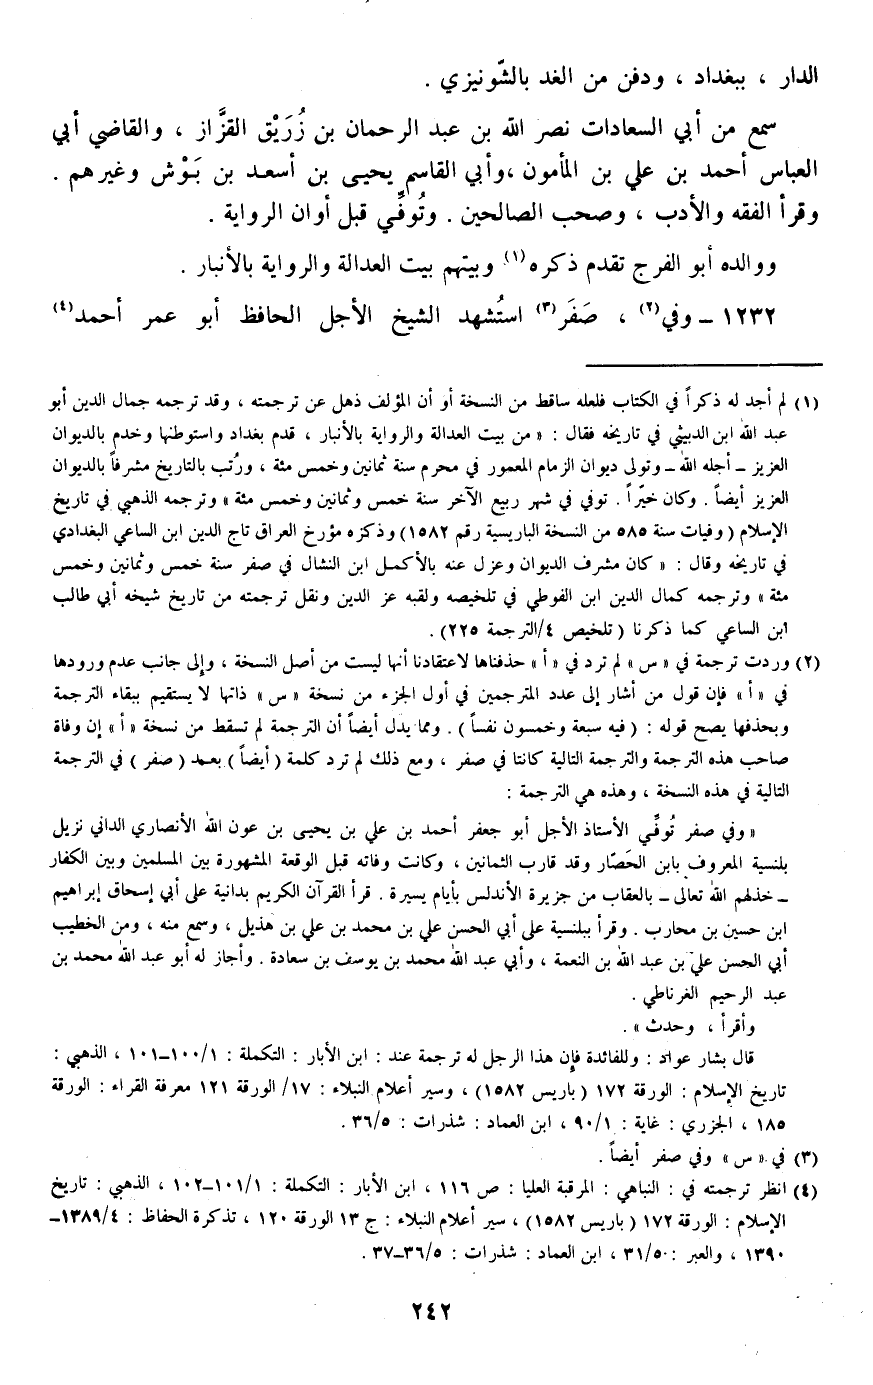 الدار ، ببغداد ، ودفن من الغد بالشّونيزي .
سمع من أبي السعادات نصر الله بن عبد الرحمان بن زُرَيْق القزَّاز ، والقاضي أبي
العباس أحمد بن علي بن المأمون ،وأبي القاسم يحيى بن أسعد بن بَوْش وغيرهم .
وقرأ الفقه والأدب ، وصحب الصالحين . وتُوفِّي قبل أوان الرواية .
ووالده أبو الفرج تقدم ذكره(١) وبيتهم بيت العدالة والرواية بالأنبار .
١٢٣٢ ــ وفي(٢) ، صَفَر(٣) استُشهد الشيخ الأجل الحافظ أبو عمر أحمد(٤)
(١) لم أجد له ذكراً في الكتاب فلعله ساقط من النسخة أو أن المؤلف ذهل عن ترجمته ، وقد ترجمه جمال الدين أبو
عبد الله ابن الدبيثي في تاريخه فقال : « من بيت العدالة والرواية بالأنبار ، قدم بغداد واستوطنها وخدم بالديوان
العزيز ــ أجله الله ــ وتولى ديوان الزمام المعمور في محرم سنة ثمانين وخمس مئة ، ورُتب بالتاريخ مشرفاً بالديوان
العزيز أيضاً . وكان خيّراً . توفي في شهر ربيع الآخر سنة خمس وثمانين وخمس مئة » وترجمه الذهبي في تاريخ
الإسلام ( وفيات سنة ٥٨٥ من النسخة الباريسية رقم ١٥٨٢) وذكره مؤرخ العراق تاج الدين ابن الساعي البغدادي
في تاريخه وقال : « كان مشرف الديوان وعزل عنه بالأكمل ابن النشال في صفر سنة خمس وثمانين وخمس
مئة » وترجمه كمال الدين ابن الفوطي في تلخيصه ولقبه عز الدين ونقل ترجمته من تاريخ شيخه أبي طالب
ابن الساعي كما ذكرنا ( تلخيص ٤/الترجمة ٢٢٥) .
(٢) وردت ترجمة في « س » لم ترد في « أ » حذفناها لاعتقادنا أنها ليست من أصل النسخة ، وإلى جانب عدم ورودها
في « أ » فإن قول من أشار إلى عدد المترجمين في أول الجزء من نسخة « س » ذاتها لا يستقيم ببقاء الترجمة
وبحذفها يصح قوله : ( فيه سبعة وخمسون نفساً ) . ومما يدل أيضاً أن الترجمة لم تسقط من نسخة « أ » إن وفاة
صاحب هذه الترجمة والترجمة التالية كانتا في صفر ، ومع ذلك لم ترد كلمة ( أيضاً ) بعد ( صفر ) في الترجمة
التالية في هذه النسخة ، وهذه هي الترجمة :
« وفي صفر تُوفِّي الأستاذ الأجل أبو جعفر أحمد بن علي بن يحيى بن عون الله الأنصاري الداني نزيل
بلنسية المعروف بابن الحَصّار وقد قارب الثمانين ، وكانت وفاته قبل الوقعة المشهورة بين المسلمين وبين الكفار
ــ خذلهم الله تعالى ــ بالعقاب من جزيرة الأندلس بأيام يسيرة . قرأ القرآن الكريم بدانية على أبي إسحاق إبراهيم
ابن حسين بن محارب . وقرأ ببلنسية على أبي الحسن علي بن محمد بن علي بن هذيل ، وسمع منه ، ومن الخطيب
أبي الحسن علي بن عبد الله بن النعمة ، وأبي عبد الله محمد بن يوسف بن سعادة . وأجاز له أبو عبد الله محمد بن
عبد الرحيم الغرناطي .
وأقرأ ، وحدث » .
قال بشار عواد : وللفائدة فإن هذا الرجل له ترجمة عند : ابن الأبار : التكملة : ١/‏١٠٠ــ١٠١ ، الذهبي :
تاريخ الإسلام : الورقة ١٧٢ ( باريس ١٥٨٢) ، وسير أعلام النبلاء : ١٧/ الورقة ١٢١ معرفة القراء : الورقة
١٨٥ ، الجزري : غاية : ١/‏٩٠ ، ابن العماد : شذرات : ٥/‏٣٦ .
(٣) في « س » وفي صفر أيضاً .
(٤) انظر ترجمته في : النباهي : المرقبة العليا : ص ١١٦ ، ابن الأبار : التكملة : ١/‏١٠١ــ١٠٢ ، الذهبي : تاريخ
الإسلام : الورقة ١٧٢ ( باريس ١٥٨٢) ، سير أعلام النبلاء : ج ١٣ الورقة ١٢٠ ، تذكرة الحفاظ : ٤/‏١٣٨٩ــ
١٣٩٠ ، والعبر : ٥/‏٣١ ، ابن العماد : شذرات : ٥/‏٣٦ــ٣٧ .
٢٤٢